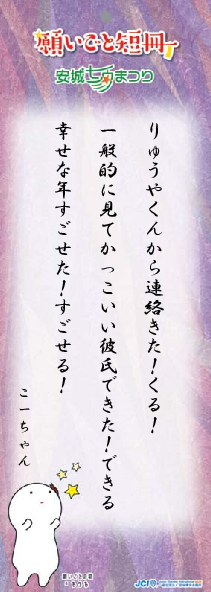 願いごと短冊
安城七夕まつり
りゅうやくんから連絡きた！くる！
一般的に見てかっこいい彼氏できた！できる
幸せな年すごせた！すごせる！
こーちゃん
JCI